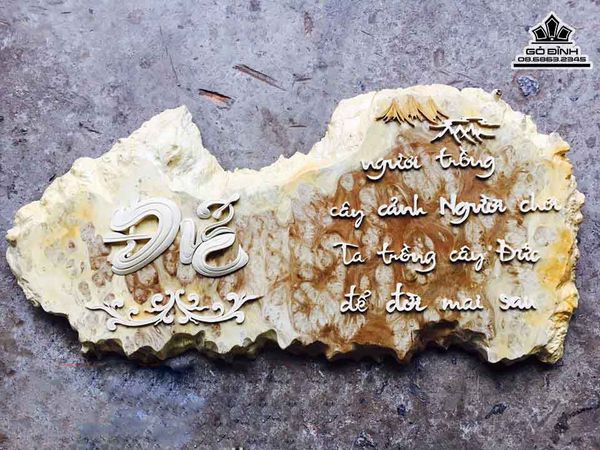 GỖ ĐỈNH
08.6863.2345
người trồng
cây cảnh Người chơi
Ta trồng cây Đức
để đời mai sau